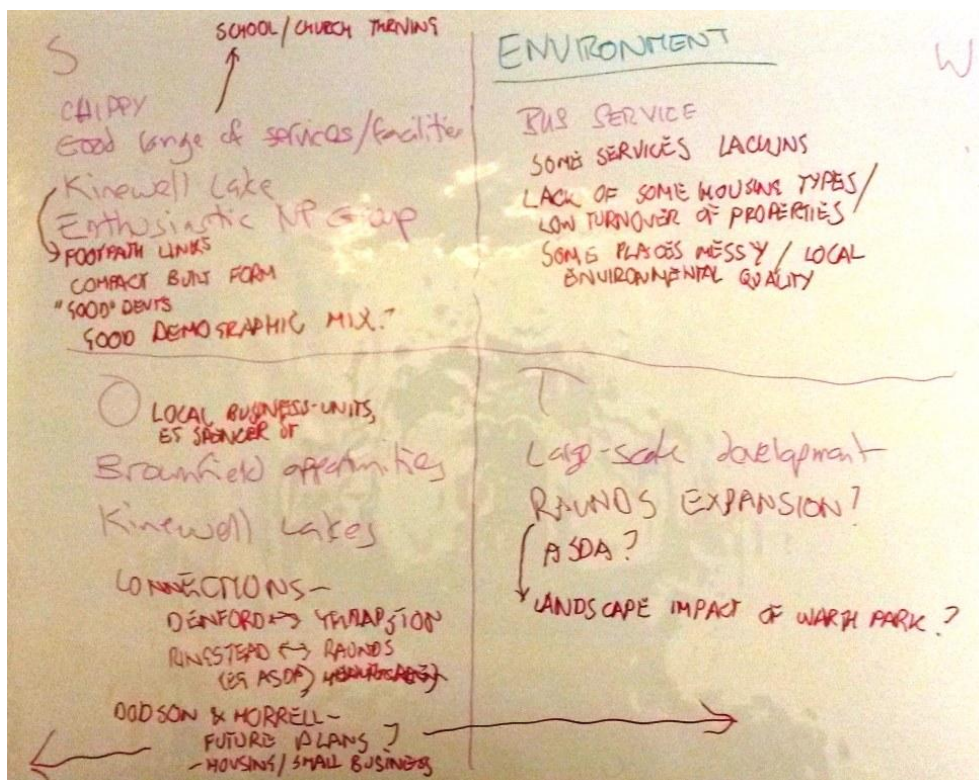 S
SCHOOL / CHURCH THRIVING
CHIPPY
Good range of services/facilities
Kinewell Lake
Enthusiastic NP Group
FOOTPATH LINKS
COMPACT BUILT FORM
"GOOD" DEVTS
GOOD DEMOGRAPHIC MIX?
ENVIRONMENT
W
BUS SERVICE
SOME SERVICES LACKING
LACK OF SOME HOUSING TYPES/
LOW TURNOVER OF PROPERTIES
SOME PLACES MESSY / LOCAL
ENVIRONMENTAL QUALITY
O
LOCAL BUSINESS-UNITS,
EG SPENCER ST
Brownfield opportunities
Kinewell Lakes
CONNECTIONS-
DENFORD ↔ THRAPSTON
RINGSTEAD ↔ RAUNDS
(EG ASDA)
DODSON & HORRELL-
FUTURE PLANS?
- HOUSING/SMALL BUSINESS
T
Large-scale development
RAUNDS EXPANSION?
ASDA?
LANDSCAPE IMPACT OF WARTH PARK?